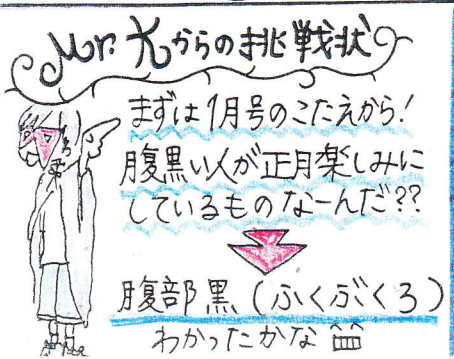 Mr. Kからの挑戦状
まずは1月号のこたえから!
腹黒い人が正月楽しみに
しているものなーんだ??
腹部黒(ふくぶくろ)
わかったかな